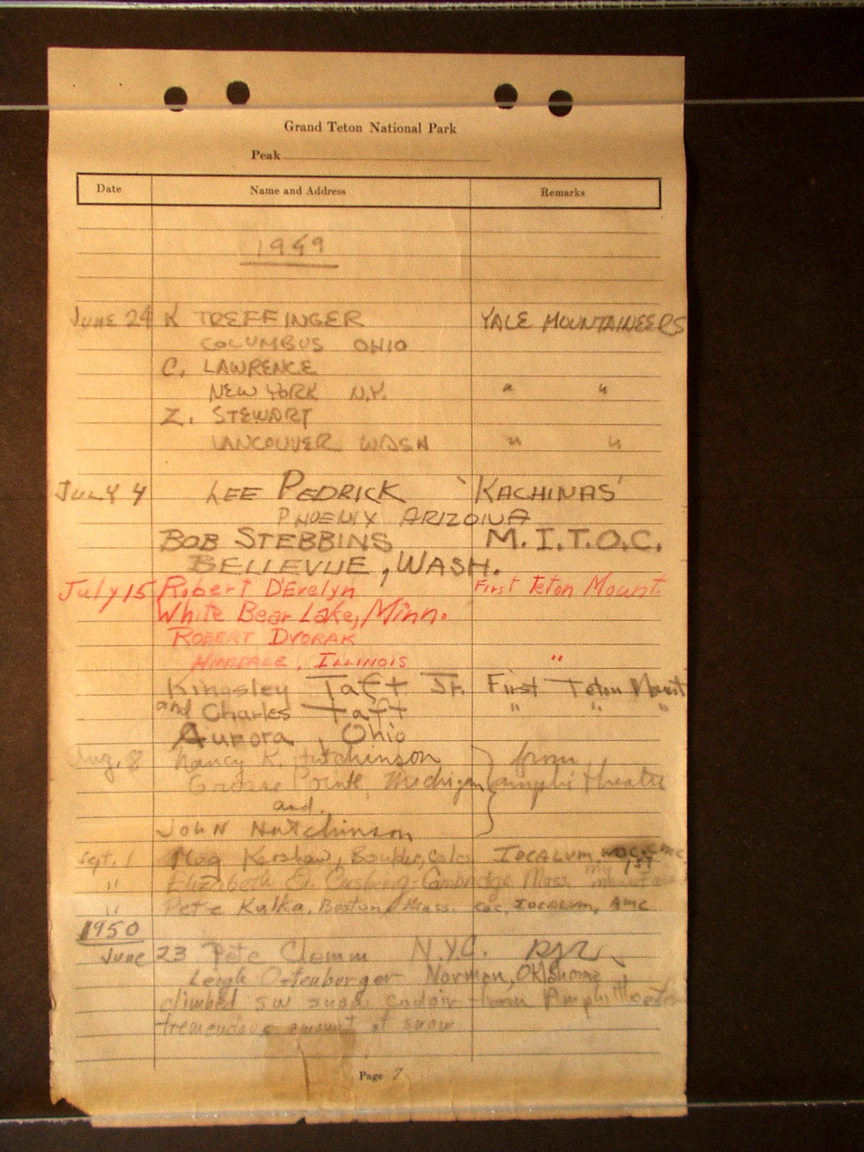 Grand Teton National Park
Peak
Date Name and Address Remarks
1949
JUNE 24 K TREFFINGER YALE MOUNTAINEERS
COLUMBUS OHIO
C. LAWRENCE
NEW YORK N.Y. " "
Z. STEWART
VANCOUVER WASH " "
JULY 4 LEE PEDRICK 'KACHINAS'
PHOENIX ARIZONA
BOB STEBBINS M.I.T.O.C.
BELLEVUE, WASH.
July 15 Robert D'Evelyn First Teton Mount.
White Bear Lake, Minn.
ROBERT DVORAK
HINSDALE, ILLINOIS "
Kingsley Taft Jr. First Teton Mount
and Charles Taft " " "
Aurora, Ohio
Aug. 8 Nancy K. Hutchinson } from
Grosse Pointe, Michigan amphitheater
and
John Hutchinson
Sept. 1 Kershaw, Boulder, Colo IOCALUM,
" Elizabeth D. Cushing - Cambridge Mass. my 1st mountain
" Pete Kulka, Boston, Mass. IOCALUM, AMC
1950
June 23 Pete Clemm N.Y.C.
Leigh Ortenburger Norman, Oklahoma
climbed SW snow couloir from Amphitheater
tremendous amount of snow
Page 7